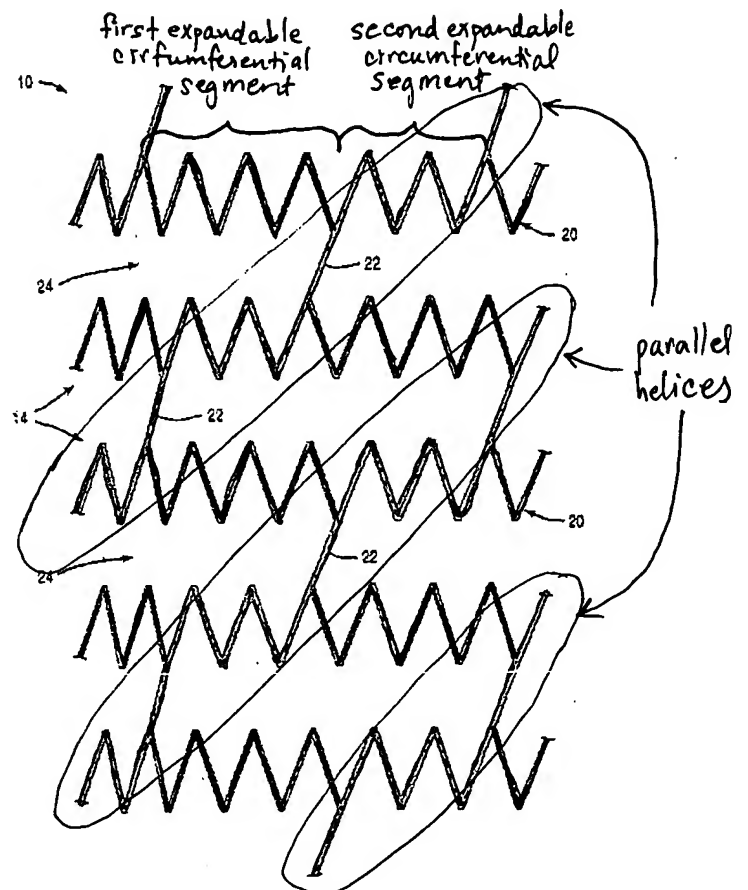 first expandable
cirfumferential
segment
second expandable
circumferential
segment
10
20
22
24
parallel
helices
14
22
20
22
24